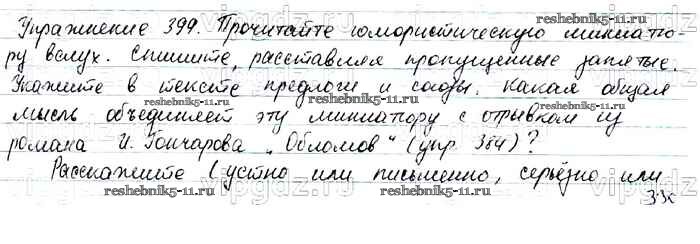 Упражнение 399. Прочитайте юмористическую миниатю-
ру вслух. Спишите, расставляя пропущенные запятые.
Укажите в тексте предлоги и союзы. Какая общая
мысль объединяет эту миниатюру с отрывком из
романа И. Гончарова „Обломов“ (упр. 384)?
Расскажите (устно или письменно, серьёзно или
reshebnik5-11.ru
vipgdz.ru